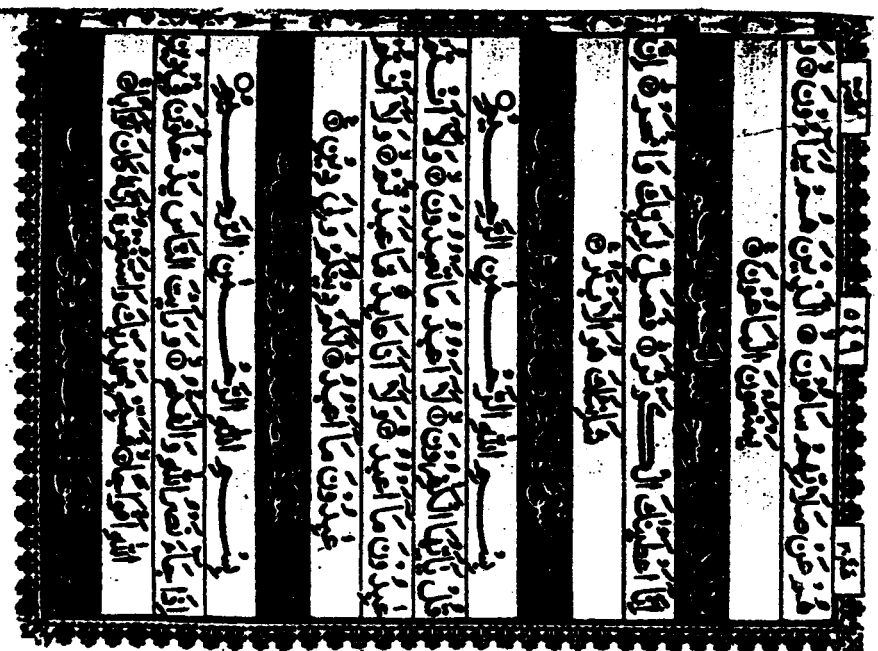 ٥٤٩
هُمْ عَنْ صَلَاتِهِمْ سَاهُونَ ۝ الَّذِينَ هُمْ يُرَآءُونَ ۝ وَ
يَمْنَعُونَ الْمَاعُونَ ۝
اِنَّآ اَعْطَيْنٰكَ الْكَوْثَرَ ۝ فَصَلِّ لِرَبِّكَ وَانْحَرْ ۝ اِنَّ
شَانِئَكَ هُوَ الْاَبْتَرُ ۝
بِسْمِ اللّٰهِ الرَّحْمٰنِ الرَّحِيْمِ ۝
قُلْ يٰٓاَيُّهَا الْكٰفِرُونَ ۝ لَآ اَعْبُدُ مَا تَعْبُدُونَ ۝ وَلَآ اَنْتُمْ
عٰبِدُونَ مَآ اَعْبُدُ ۝ وَلَآ اَنَا عَابِدٌ مَا عَبَدْتُمْ ۝ وَلَآ اَنْتُمْ
عٰبِدُونَ مَآ اَعْبُدُ ۝ لَكُمْ دِينُكُمْ وَلِيَ دِينِ ۝
بِسْمِ اللّٰهِ الرَّحْمٰنِ الرَّحِيْمِ ۝
اِذَا جَآءَ نَصْرُ اللّٰهِ وَالْفَتْحُ ۝ وَرَاَيْتَ النَّاسَ يَدْخُلُونَ فِي دِينِ
اللّٰهِ اَفْوَاجًا ۝ فَسَبِّحْ بِحَمْدِ رَبِّكَ وَاسْتَغْفِرْهُ اِنَّهُ كَانَ تَوَّابًا ۝